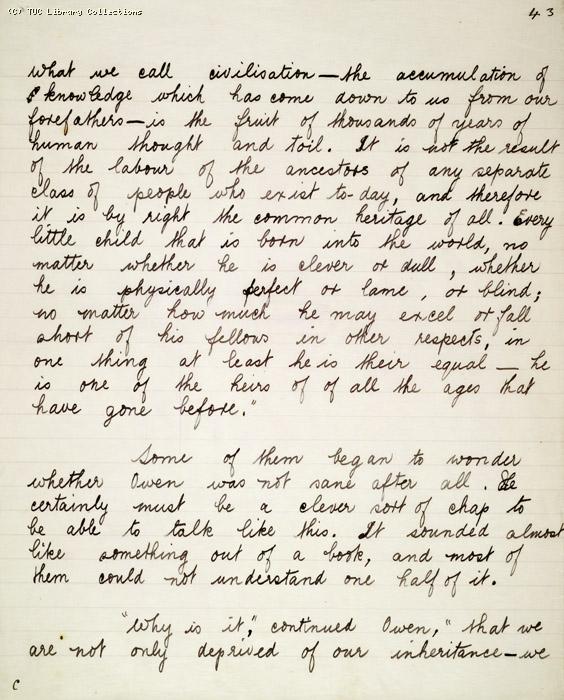 (C) TUC Library Collections
43
what we call civilisation—the accumulation of
knowledge which has come down to us from our
forefathers—is the fruit of thousands of years of
human thought and toil. It is not the result
of the labour of the ancestors of any separate
class of people who exist to-day, and therefore
it is by right the common heritage of all. Every
little child that is born into the world, no
matter whether he is clever or dull, whether
he is physically perfect or lame, or blind;
no matter how much he may excel or fall
short of his fellows in other respects, in
one thing at least he is their equal — he
is one of the heirs of of all the ages that
have gone before."
Some of them began to wonder
whether Owen was not sane after all. He
certainly must be a clever sort of chap to
be able to talk like this. It sounded almost
like something out of a book, and most of
them could not understand one half of it.
"Why is it," continued Owen, "that we
are not only deprived of our inheritance—we
c